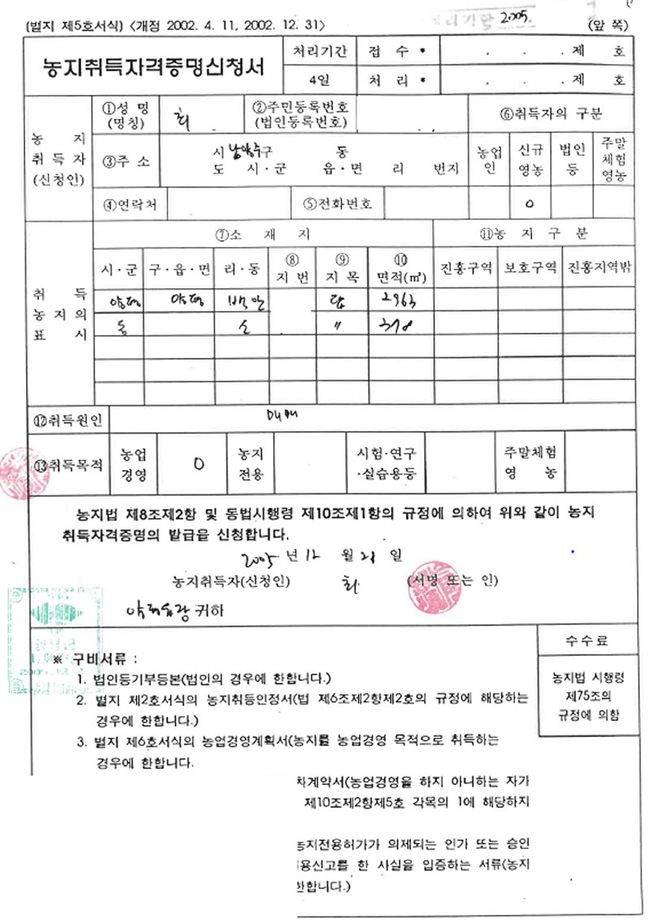 [별지 제5호서식] <개정 2002. 4. 11, 2002. 12. 31>
2005.
(앞 쪽)
농지취득자격증명신청서
처리기간 접 수 * . . . 제 호
4일 처 리 * . . . 제 호
농 지
취 득 자
(신청인)
①성 명
(명칭)
최
②주민등록번호
(법인등록번호)
⑥취득자의 구분
③주 소
시 남양주 구 동
도 시·군 읍·면 리 번지
농업
인
신규
영농
법인
등
주말
체험
영농
○
④연락처 ⑤전화번호
취 득
농 지 의
표 시
⑦소 재 지 ⑪농 지 구 분
시·군 구·읍·면 리·동 ⑧지 번 ⑨지 목 ⑩면적(㎡) 진흥구역 보호구역 진흥지역밖
양평 양평 백안 답 2963
동 〃 378
⑫취득원인 매매
⑬취득목적 농업
경영 ○ 농지
전용 시험·연구
·실습용등 주말체험
영 농
농지법 제8조제2항 및 동법시행령 제10조제1항의 규정에 의하여 위와 같이 농지
취득자격증명의 발급을 신청합니다.
2005 년 12 월 21 일
농지취득자(신청인) 최 (서명 또는 인)
양평읍장 귀하
수수료
농지법 시행령
제75조의
규정에 의함
※ 구비서류 :
1. 법인등기부등본(법인의 경우에 한합니다.)
2. 별지 제2호서식의 농지취득인정서(법 제6조제2항제2호의 규정에 해당하는
경우에 한합니다.)
3. 별지 제6호서식의 농업경영계획서(농지를 농업경영 목적으로 취득하는
경우에 한합니다.
차계약서(농업경영을 하지 아니하는 자가
제10조제2항제5호 각목의 1에 해당하지
농지전용허가가 의제되는 인가 또는 승인
용신고를 한 사실을 입증하는 서류(농지
한합니다.)